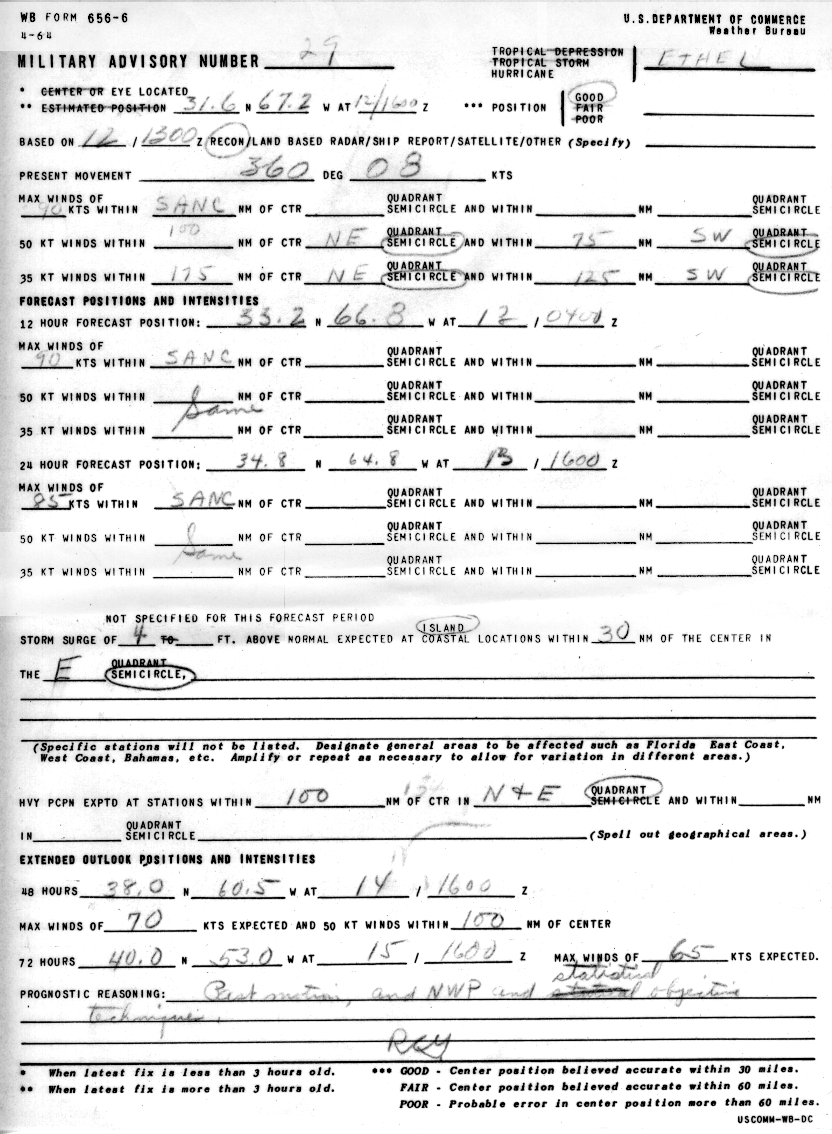 WB FORM 656-6
4-64
U.S.DEPARTMENT OF COMMERCE
Weather Bureau
MILITARY ADVISORY NUMBER 29
TROPICAL DEPRESSION
TROPICAL STORM
HURRICANE
ETHEL
* CENTER OR EYE LOCATED
** ESTIMATED POSITION 31.6 N 67.2 W AT 12/1600 Z *** POSITION
GOOD
FAIR
POOR
BASED ON 12 / 1300 Z RECON/LAND BASED RADAR/SHIP REPORT/SATELLITE/OTHER (Specify)
PRESENT MOVEMENT 360 DEG 08 KTS
MAX WINDS OF QUADRANT QUADRANT
90 KTS WITHIN SANC NM OF CTR SEMICIRCLE AND WITHIN NM SEMICIRCLE
100 QUADRANT QUADRANT
50 KT WINDS WITHIN NM OF CTR NE SEMICIRCLE AND WITHIN 75 NM SW SEMICIRCLE
QUADRANT QUADRANT
35 KT WINDS WITHIN 175 NM OF CTR NE SEMICIRCLE AND WITHIN 125 NM SW SEMICIRCLE
FORECAST POSITIONS AND INTENSITIES
12 HOUR FORECAST POSITION: 33.2 N 66.8 W AT 12 / 0400 Z
MAX WINDS OF QUADRANT QUADRANT
90 KTS WITHIN SANC NM OF CTR SEMICIRCLE AND WITHIN NM SEMICIRCLE
QUADRANT QUADRANT
50 KT WINDS WITHIN NM OF CTR SEMICIRCLE AND WITHIN NM SEMICIRCLE
Same
QUADRANT QUADRANT
35 KT WINDS WITHIN NM OF CTR SEMICIRCLE AND WITHIN NM SEMICIRCLE
24 HOUR FORECAST POSITION: 34.8 N 64.8 W AT 13 / 1600 Z
MAX WINDS OF QUADRANT QUADRANT
85 KTS WITHIN SANC NM OF CTR SEMICIRCLE AND WITHIN NM SEMICIRCLE
QUADRANT QUADRANT
50 KT WINDS WITHIN NM OF CTR SEMICIRCLE AND WITHIN NM SEMICIRCLE
Same
QUADRANT QUADRANT
35 KT WINDS WITHIN NM OF CTR SEMICIRCLE AND WITHIN NM SEMICIRCLE
NOT SPECIFIED FOR THIS FORECAST PERIOD
ISLAND
STORM SURGE OF 4 TO FT. ABOVE NORMAL EXPECTED AT COASTAL LOCATIONS WITHIN 30 NM OF THE CENTER IN
QUADRANT
THE E SEMICIRCLE,
(Specific stations will not be listed. Designate general areas to be affected such as Florida East Coast,
West Coast, Bahamas, etc. Amplify or repeat as necessary to allow for variation in different areas.)
QUADRANT
HVY PCPN EXPTD AT STATIONS WITHIN 100 NM OF CTR IN N & E SEMICIRCLE AND WITHIN NM
QUADRANT
IN SEMICIRCLE (Spell out geographical areas.)
EXTENDED OUTLOOK POSITIONS AND INTENSITIES
48 HOURS 38.0 N 60.5 W AT 14 / 1600 Z
MAX WINDS OF 70 KTS EXPECTED AND 50 KT WINDS WITHIN 100 NM OF CENTER
72 HOURS 40.0 N 53.0 W AT 15 / 1600 Z MAX WINDS OF 65 KTS EXPECTED.
statistical
PROGNOSTIC REASONING: Past motion, and NWP and objective
techniques.
RCY
* When latest fix is less than 3 hours old.
** When latest fix is more than 3 hours old.
*** GOOD - Center position believed accurate within 30 miles.
FAIR - Center position believed accurate within 60 miles.
POOR - Probable error in center position more than 60 miles.
USCOMM-WB-DC